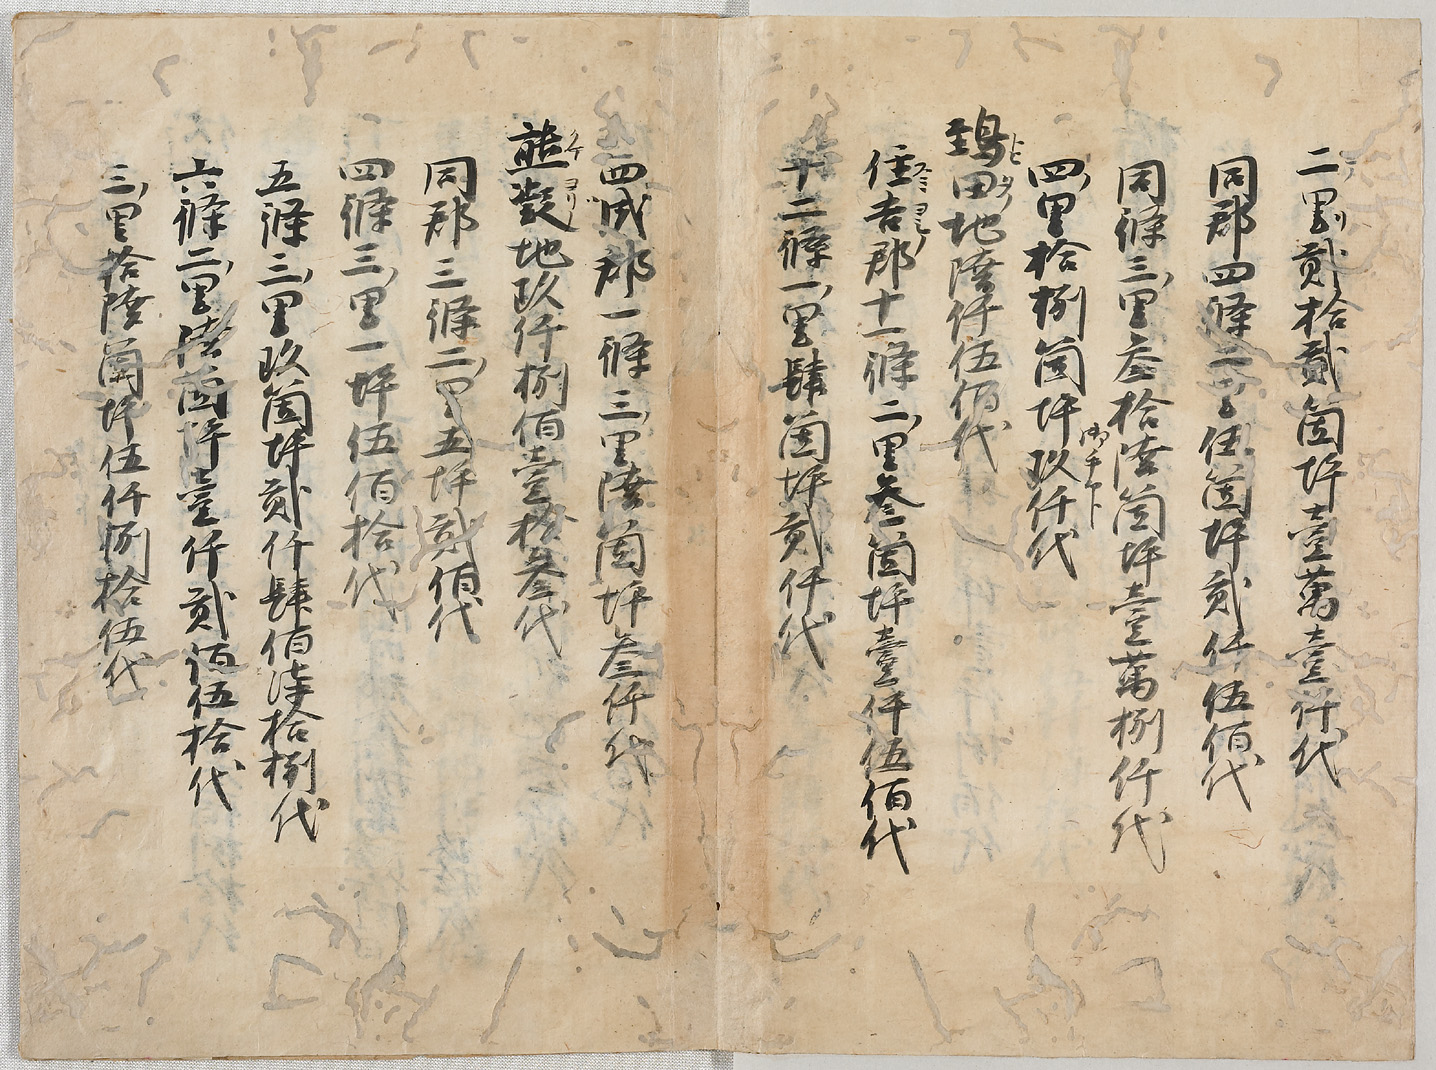 二里貳拾貳箇坪壹萬壹仟代
同郡四條二里伍箇坪貳仟伍佰代
同條三里叁拾陸箇坪壹萬捌仟代
四里拾捌箇坪玖仟代
鵄田地陸仟伍佰代
住吉郡十一條二里叁箇坪壹仟伍佰代
十二條一里肆箇坪貳仟代
西成郡一條三里陸箇坪叁仟代
熊凝地玖仟捌佰壹拾叁代
同郡三條二里五坪貳佰代
四條三里一坪伍佰拾代
五條三里玖箇坪貳仟肆佰柒拾捌代
六條二里陸箇坪壹仟貳佰伍拾代
三里拾陸箇坪伍仟捌拾伍代